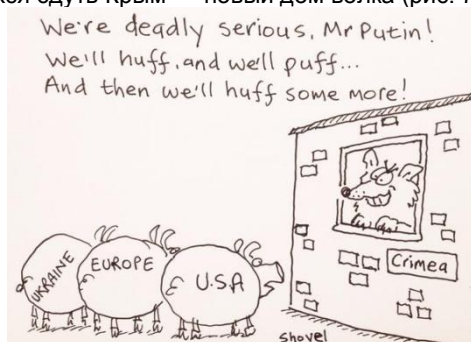 сдуть Крым — новый дом волка (рис.
We're deadly serious, Mr Putin!
We'll huff, and we'll puff...
And then we'll huff some more!
UKRAINE
EUROPE
U.S.A
Crimea
Shovel